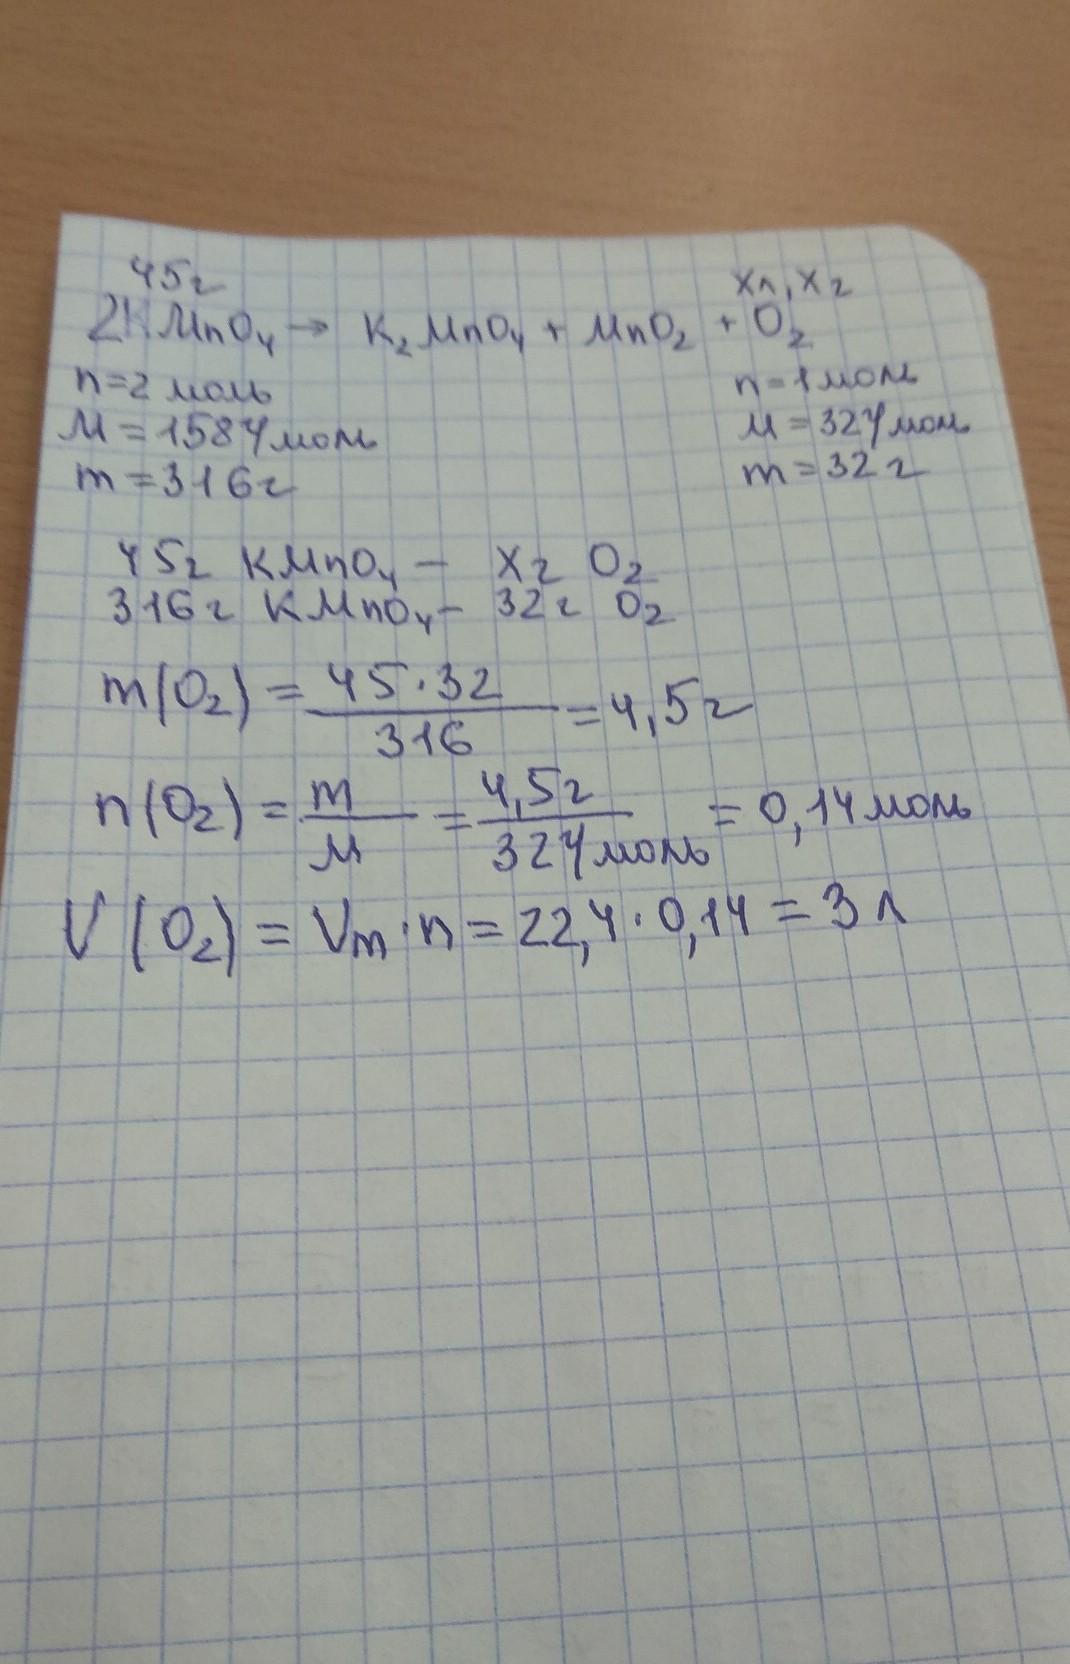 45г xл, xг
2KMnO₄ → K₂MnO₄ + MnO₂ + O₂
n=2 моль n=1 моль
M=158 г/моль M=32 г/моль
m=316г m=32 г
45г KMnO₄ – xг O₂
316г KMnO₄ – 32г O₂
m(O₂) = 45·32/316 = 4,5г
n(O₂) = m/M = 4,5г/32 г/моль = 0,14 моль
V(O₂) = Vm·n = 22,4·0,14 = 3 л